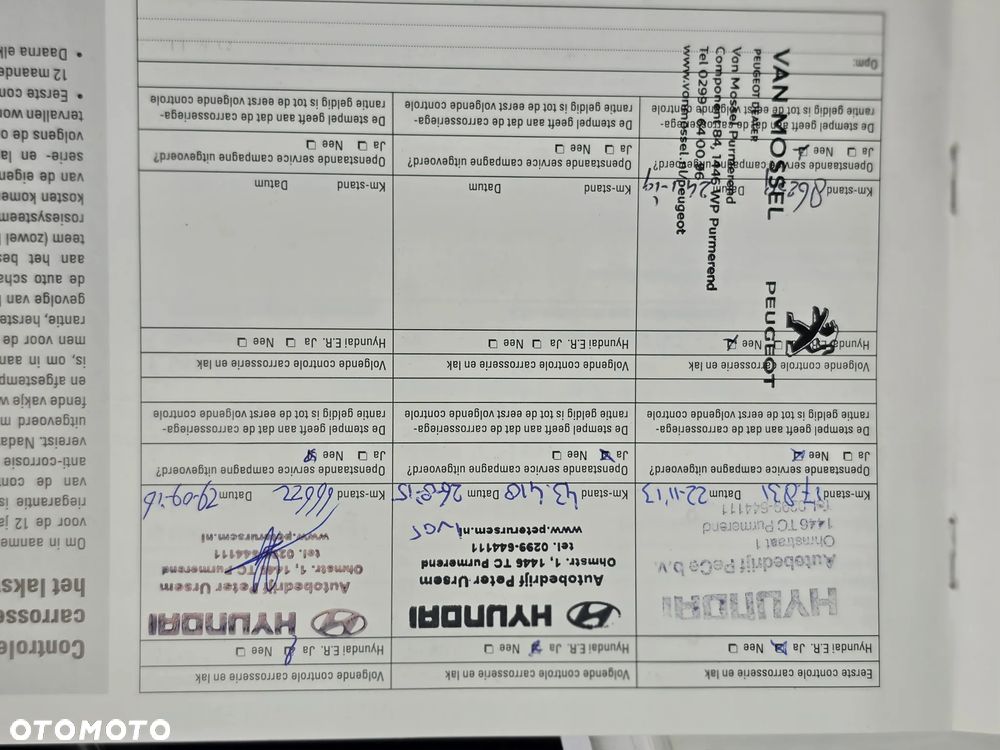 Controle
carrosse
het laks
Om in aanme
voor de 12 ja
riegarantie is
van de con
anti-corrosie
vereist. Nada
uitgevoerd m
fende vakje w
en afgestemp
is, om in aan
men voor de
rantie, herste
gevolge van
de auto scha
aan het bes
teem (zowel
rosiesysteem
kosten komen
van de eigen
serie- en la
volgens de o
tervallen wor
• Eerste con
12 maande
• Daarna elk
Eerste controle carrosserie en lak
Hyundai E.R. Ja Nee
HYUNDAI
Autobedrijf PeGe b.v.
Ohmstraat 1
1446 TC Purmerend
Tel 0299-644111
Km-stand 17831 Datum 22-11-13
Openstaande service campagne uitgevoerd?
Ja Nee
De stempel geeft aan dat de carrosseriega-
rantie geldig is tot de eerst volgende controle
Volgende controle carrosserie en lak
Hyundai E.R. Ja Nee
HYUNDAI
Autobedrijf Peter Ursem
Ohmstr. 1, 1446 TC Purmerend
tel. 0299-644111
www.peterursem.nl
Km-stand 43.410 Datum
Openstaande service campagne uitgevoerd?
Ja Nee
De stempel geeft aan dat de carrosseriega-
rantie geldig is tot de eerst volgende controle
Volgende controle carrosserie en lak
Hyundai E.R. Ja Nee
HYUNDAI
Autobedrijf Peter Ursem
Ohmstr. 1, 1446 TC Purmerend
tel. 0299-644111
www.peterursem.nl
Km-stand 66622 Datum 29-09-16
Openstaande service campagne uitgevoerd?
Ja Nee
De stempel geeft aan dat de carrosseriega-
rantie geldig is tot de eerst volgende controle
Volgende controle carrosserie en lak
Hyundai E.R. Ja Nee
PEUGEOT
VAN MOSSEL
PEUGEOT DEALER
Van Mossel Purmerend
Component 84, 1446 WP Purmerend
Tel 0299 - 64 00 86
www.vanmossel.nl/peugeot
Km-stand Datum
Openstaande service campagne uitgevoerd?
Ja Nee
De stempel geeft aan dat de carrosseriega-
rantie geldig is tot de eerst volgende controle
Volgende controle carrosserie en lak
Hyundai E.R. Ja Nee
Km-stand Datum
Openstaande service campagne uitgevoerd?
Ja Nee
De stempel geeft aan dat de carrosseriega-
rantie geldig is tot de eerst volgende controle
Volgende controle carrosserie en lak
Hyundai E.R. Ja Nee
Km-stand Datum
Openstaande service campagne uitgevoerd?
Ja Nee
De stempel geeft aan dat de carrosseriega-
rantie geldig is tot de eerst volgende controle
Opm:
OTOMOTO